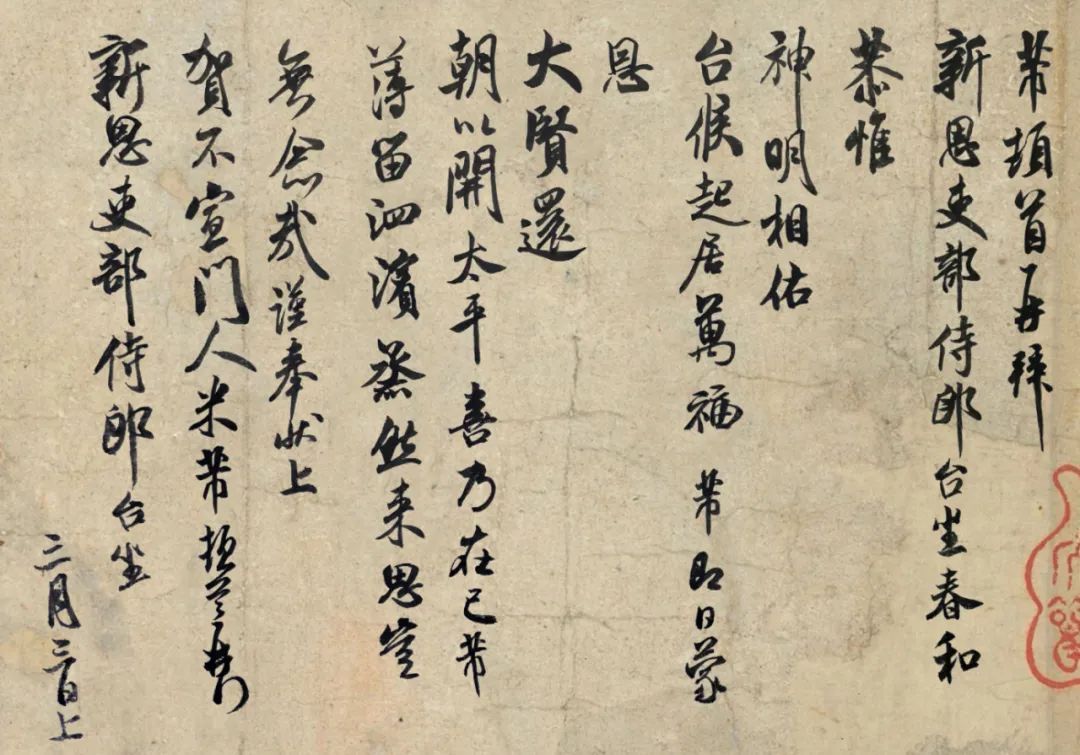 芾頓首再拜
新恩吏部侍郎台坐春和
恭惟
神明相佑
台候起居萬福 芾即日蒙
恩
大賢還
朝以開太平喜乃在己芾
薄留泗濱烝然来思豈
無念哉謹奉状上
賀不宣門人米芾頓首再拜
新恩吏部侍郎台坐
三月三日上